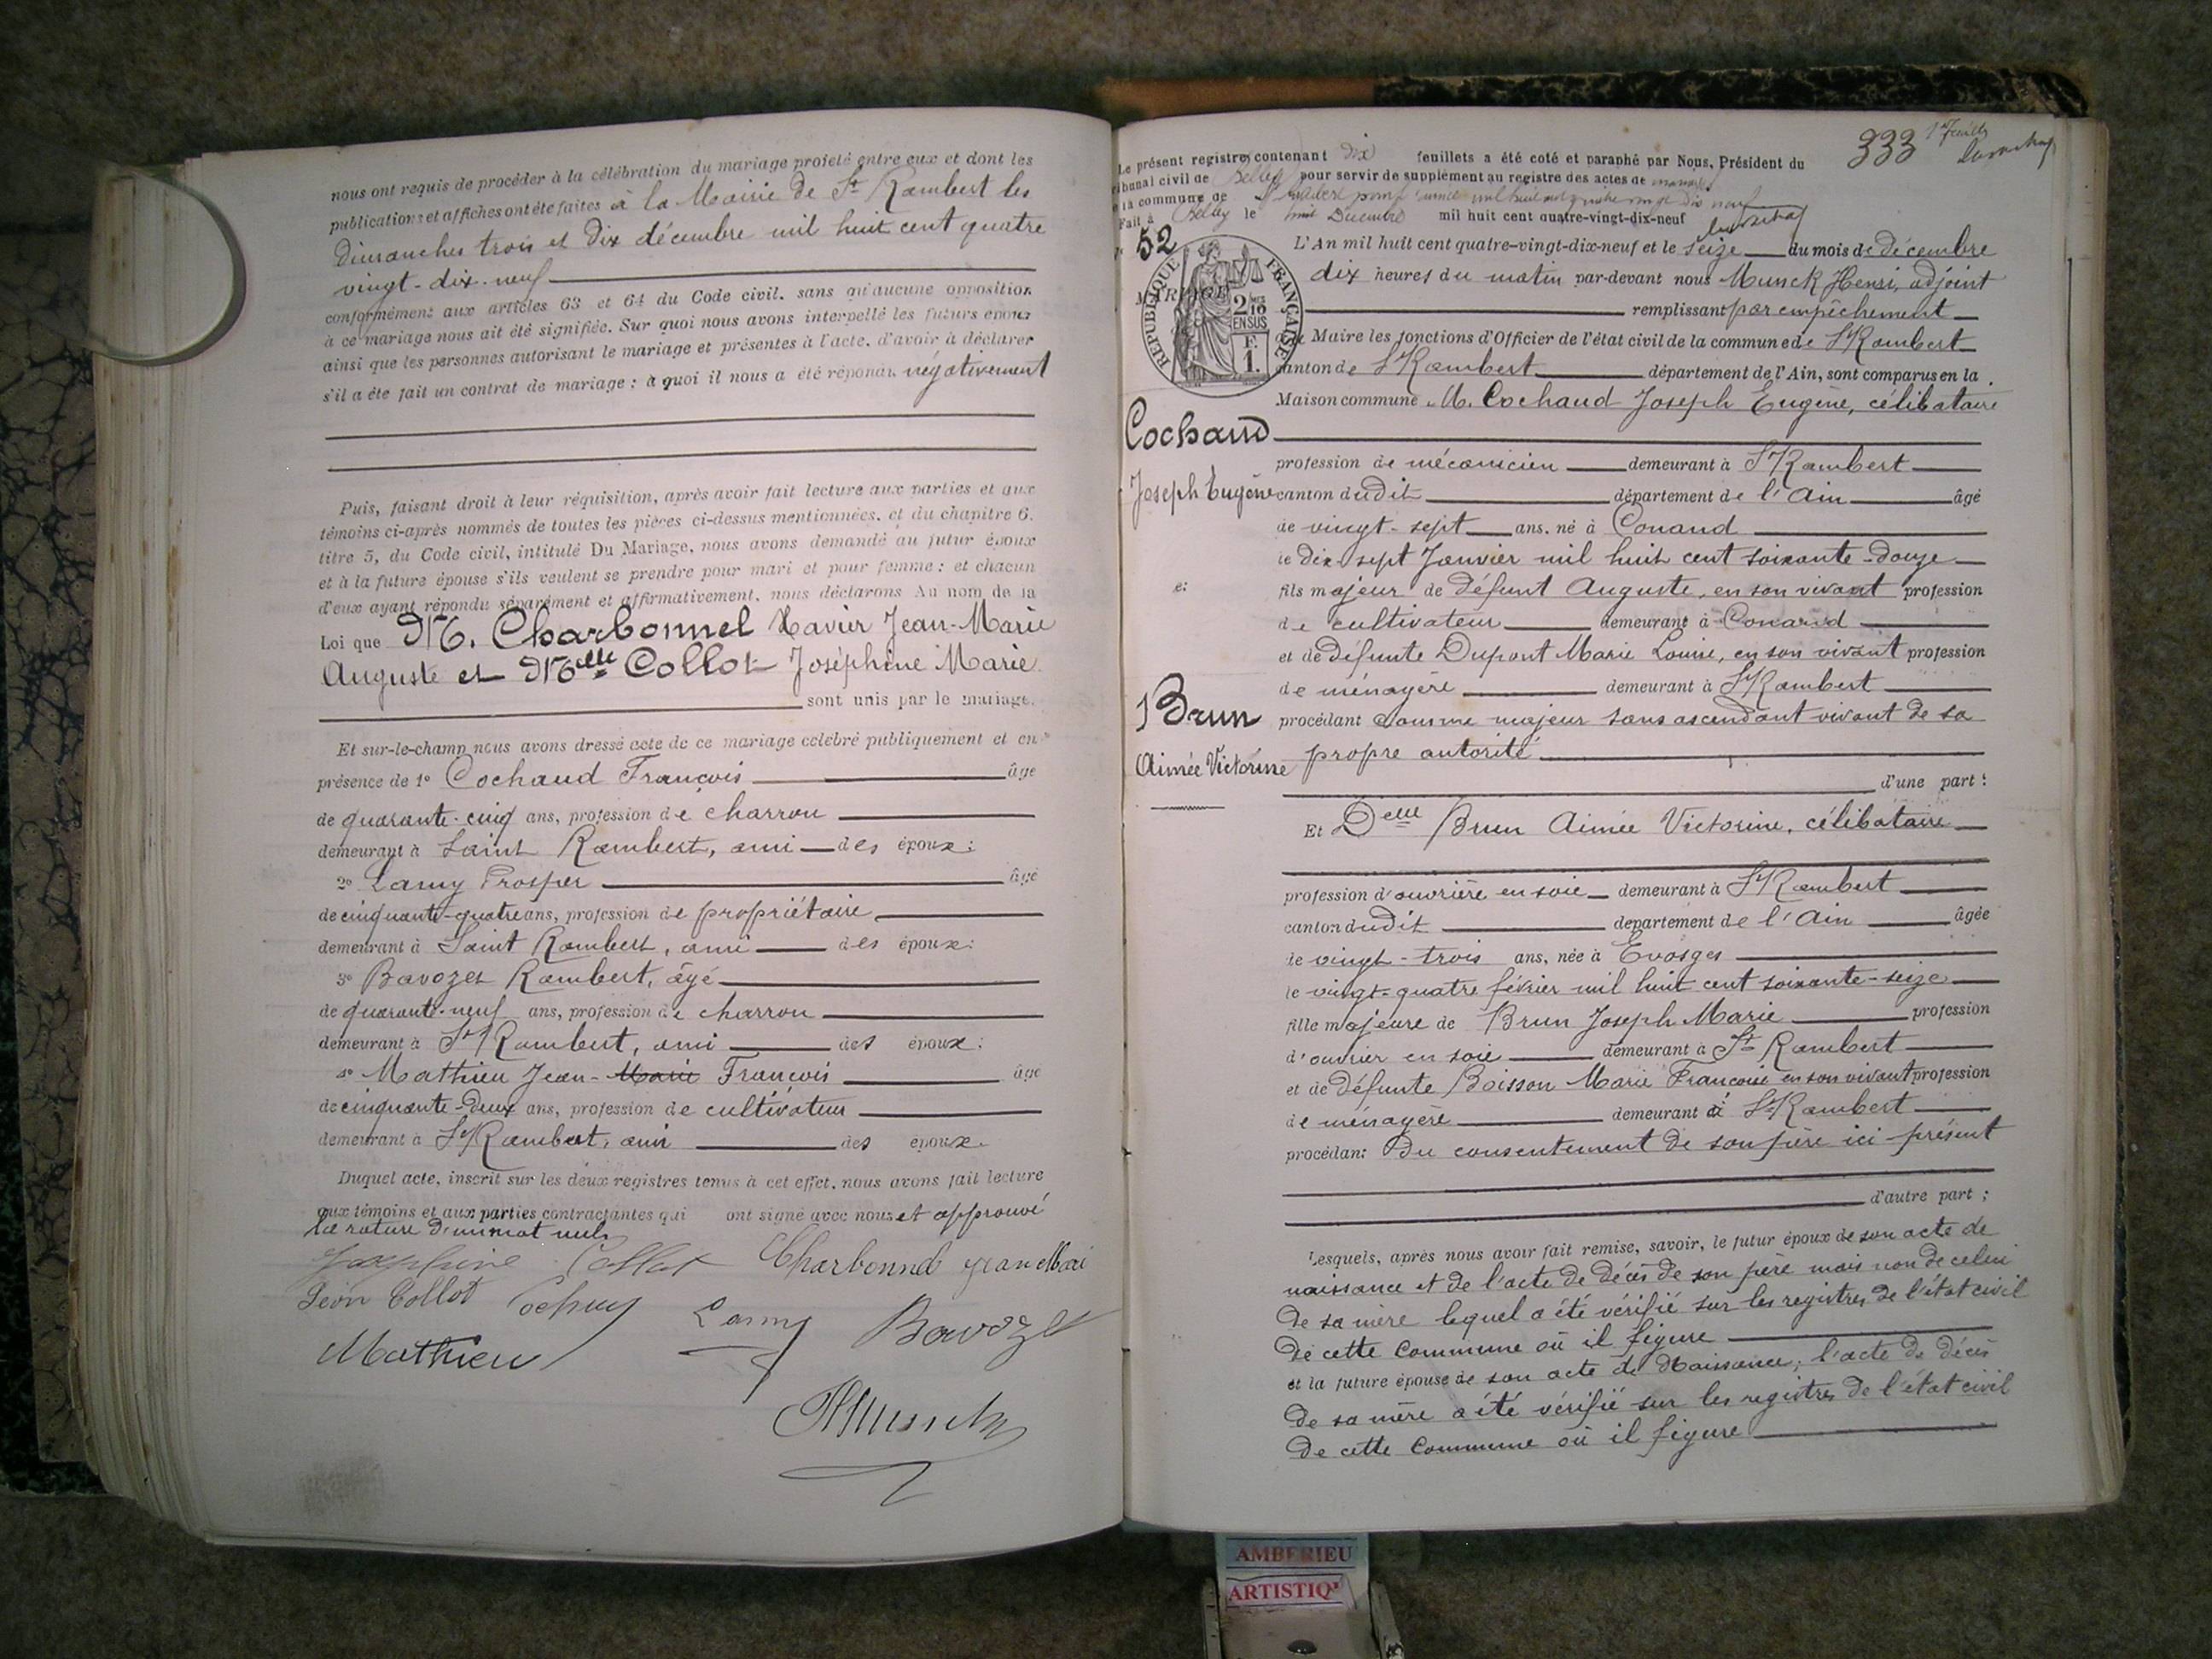 nous ont requis de procéder à la célébration du mariage projeté entre eux et dont les
publications et affiches ont été faites à la Mairie de St Rambert les
dimanches trois et dix décembre mil huit cent quatre
vingt-dix-neuf
conformément aux articles 63 et 64 du Code civil, sans qu'aucune opposition
à ce mariage nous ait été signifiée. Sur quoi nous avons interpellé les futurs époux
ainsi que les personnes autorisant le mariage et présentes à l'acte, d'avoir à déclarer
s'il a été fait un contrat de mariage ; à quoi il nous a été répondu négativement
Puis, faisant droit à leur réquisition, après avoir fait lecture aux parties et aux
témoins ci-après nommés de toutes les pièces ci-dessus mentionnées, et du chapitre 6,
titre 5, du Code civil, intitulé Du Mariage, nous avons demandé au futur époux
et à la future épouse s'ils veulent se prendre pour mari et pour femme ; et chacun
d'eux ayant répondu séparément et affirmativement, nous déclarons Au nom de la
Loi que M. Charbonnel Xavier Jean-Marie
Auguste et Melle Collot Joséphine Marie
sont unis par le mariage.
Et sur-le-champ nous avons dressé acte de ce mariage célébré publiquement et en
présence de 1° Cochaud François âgé
de quarante-cinq ans, profession de charron
demeurant à Saint Rambert, ami des époux ;
2° Lamy Prosper âgé
de cinquante-quatre ans, profession de propriétaire
demeurant à Saint Rambert, ami des époux ;
3° Bavozet Rambert, âgé
de quarante-neuf ans, profession de charron
demeurant à St Rambert, ami des époux ;
4° Mathieu Jean-Marie François âgé
de cinquante-deux ans, profession de cultivateur
demeurant à St Rambert, ami des époux.
Duquel acte, inscrit sur les deux registres tenus à cet effet, nous avons fait lecture
aux témoins et aux parties contractantes qui ont signé avec nous et approuvé
la rature d'un mot nul
Joséphine Collot Charbonnel Jean Marie
Léon Collot Lamy Bavozet
Mathieu
HMunck
333 1er feuillet
Le présent registre contenant dix feuillets a été coté et paraphé par Nous, Président du
tribunal civil de Belley pour servir de supplément au registre des actes de mariages
de la commune de St Rambert pour l'année mil huit cent quatre vingt dix neuf
Fait à Belley le huit Décembre mil huit cent quatre-vingt-dix-neuf
N° 52
MARIAGE
RÉPUBLIQUE FRANÇAISE
2/10 EN SUS
F. 1.
L'An mil huit cent quatre-vingt-dix-neuf et le seize du mois de décembre
dix heures du matin par-devant nous Munck Henri, adjoint
remplissant par empêchement
de Maire les fonctions d'Officier de l'état civil de la commune de St Rambert
canton de St Rambert département de l'Ain, sont comparus en la
Maison commune M. Cochaud Joseph Eugène, célibataire
Cochaud
profession de mécanicien demeurant à St Rambert
Joseph Eugène
canton dudit département de l'Ain âgé
de vingt-sept ans, né à Conand
le dix sept Janvier mil huit cent soixante-douze
et
fils majeur de défunt Auguste, en son vivant profession
de cultivateur demeurant à Conand
et de défunte Dupont Marie Louise, en son vivant profession
de ménagère demeurant à St Rambert
Brun
procédant comme majeur sans ascendant vivant de sa
Aimée Victorine
propre autorité
d'une part ;
Et Delle Brun Aimée Victorine, célibataire
profession d'ouvrière en soie demeurant à St Rambert
canton dudit département de l'Ain âgée
de vingt-trois ans, née à Evosges
le vingt-quatre février mil huit cent soixante-seize
fille majeure de Brun Joseph Marie profession
d'ouvrier en soie demeurant à St Rambert
et de défunte Boisson Marie Françoise en son vivant profession
de ménagère demeurant à St Rambert
procédant du consentement de son père ici présent
d'autre part ;
Lesquels, après nous avoir fait remise, savoir, le futur époux de son acte de
naissance et de l'acte de décès de son père mais non de celui
de sa mère lequel a été vérifié sur les registres de l'état civil
de cette Commune où il figure
et la future épouse de son acte de Naissance ; l'acte de décès
de sa mère a été vérifié sur les registres de l'état civil
de cette Commune où il figure
AMBERIEU
ARTISTIQ